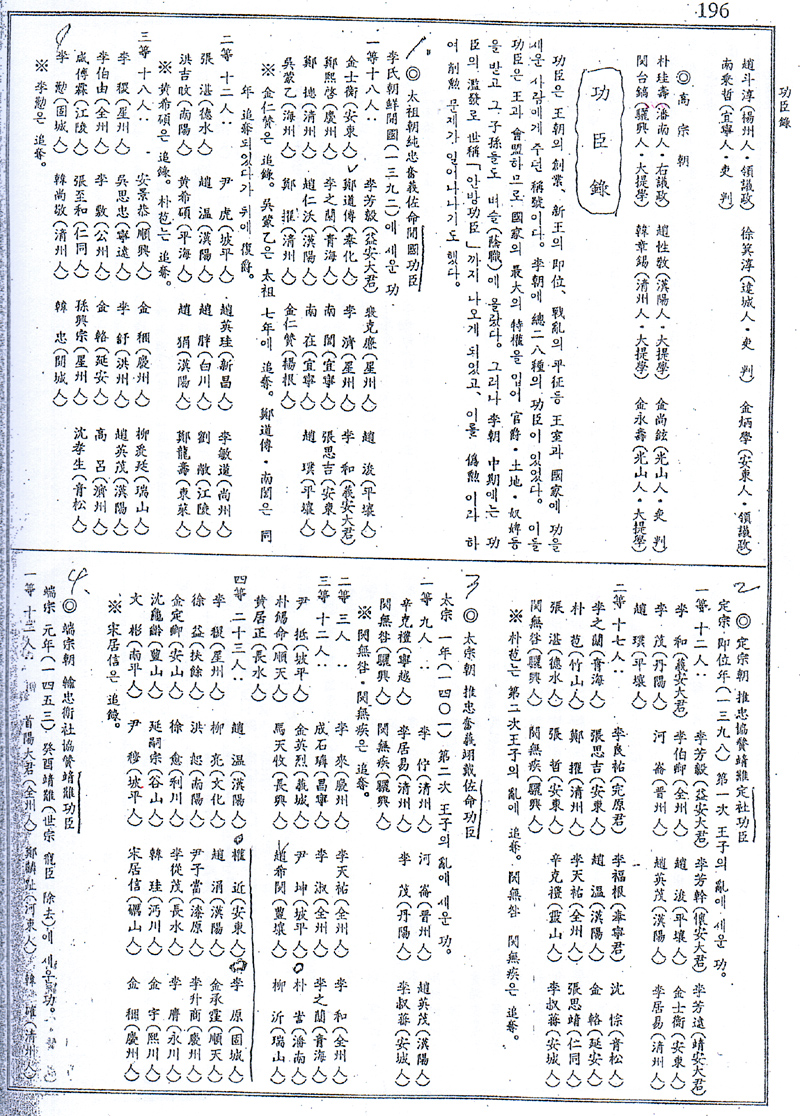 196
功臣錄
趙斗淳(楊州人·領議政) 徐箕淳(達城人·吏 判) 金炳學(安東人·領議政)
南秉哲(宜寧人·吏 判)
◎ 高 宗 朝
朴珪壽(潘南人·右議政) 趙性敎(漢陽人·大提學) 金尚鉉(光山人·吏 判)
閔台鎬(驪興人·大提學) 韓章錫(清州人·大提學) 金永壽(光山人·大提學)
功 臣 錄
功臣은 王朝의 創業、新王의 即位、戰亂의 平征等 王室과 國家에 功을
세운 사람에게 주던 稱號이다。李朝에 總二八種의 功臣이 있었다。이들
功臣은 王과 會盟하므로 國家의 最大의 特權을 입어 官爵·土地·奴婢等
을 받고 그 子孫들도 벼슬(蔭職)에 올랐다。그러나 李朝 中期에는 功
臣의 濫發로 世稱「안방功臣」까지 나오게 되었고、이를 僞勲 이라 하
여 削勲 問題가 일어나기도 했다。
1.
◎ 太祖朝純忠奮義佐命開國功臣
李氏朝鮮開國(一三九二)에 세운 功
一等十八人‥ 李芳毅(益安大君) 裵克廉(星州人) 趙 浚(平壤人)
金士衡(安東人) 鄭道傳(奉化人) 李 濟(星州人) 李 和(義安大君)
鄭熙啓(慶州人) 李之蘭(青海人) 南 誾(宜寧人) 張思吉(安東人)
鄭 摠(清州人) 趙仁沃(漢陽人) 南 在(宜寧人) 趙 璞(平壤人)
吳蒙乙(海州人) 鄭 擢(清州人) 金仁贊(楊根人)
※ 金仁贊은 追錄。吳蒙乙은 太祖 七年에 追奪。鄭道傳·南誾은 同
年 追奪되었다가 뒤에 復爵。
二等 十二人‥ 尹 虎(坡平人) 趙英珪(新昌人) 李敏道(尚州人)
張 湛(德水人) 趙 溫(漢陽人) 趙 胖(白川人) 劉 敞(江陵人)
洪吉旼(南陽人) 黃希碩(平海人) 趙 狷(漢陽人) 鄭龍壽(東萊人)
※ 黃希碩은 追錄。朴苞는 追奪。
三等 十八人‥ 安景恭(順興人) 金 稇(慶州人) 柳爰廷(瑞山人)
李 稷(星州人) 吳思忠(寧遠人) 李 舒(洪州人) 趙英茂(漢陽人)
李伯由(全州人) 李 敷(公州人) 金 輅(延安人) 高 呂(濟州人)
咸傅霖(江陵人) 張至和(仁同人) 孫興宗(星州人) 沈孝生(青松人)
李 懃(固城人) 韓尚敬(清州人) 韓 忠(開城人)
※ 李懃은 追奪。
2
◎ 定宗朝 推忠協贊靖難定社功臣
定宗 即位年(一三九八) 第一次 王子의 亂에 세운 功。
一等 十二人‥ 李芳毅(益安大君) 李芳幹(懷安大君) 李芳遠(靖安大君)
李 和(義安大君) 李伯卿(全州人) 趙 浚(平壤人) 金士衡(安東人)
李 茂(丹陽人) 河 崙(晉州人) 趙英茂(漢陽人) 李居易(清州人)
趙 璞(平壤人)
二等 十七人‥ 李良祐(完原君) 李福根(奉寧君) 沈 悰(青松人)
李之蘭(青海人) 張思吉(安東人) 趙 溫(漢陽人) 金 輅(延安人)
朴 苞(竹山人) 鄭 擢(清州人) 李天祐(全州人) 張思靖(仁同人)
張 湛(德水人) 張 哲(安東人) 辛克禮(靈山人) 李叔蕃(安城人)
閔無咎(驪興人) 閔無疾(驪興人)
※ 朴苞는 第二次王子의 亂에 追奪。閔無咎 閔無疾은 追奪。
3
◎ 太宗朝 推忠奮義翊戴佐命功臣
太宗 一年(一四〇一) 第二次 王子의 亂에 세운 功。
一等 九人‥ 李 佇(清州人) 河 崙(晉州人) 趙英茂(漢陽人)
辛克禮(寧越人) 李居易(清州人) 李 茂(丹陽人) 李叔蕃(安城人)
閔無咎(驪興人) 閔無疾(驪興人)
※ 閔無咎·閔無疾은 追奪。
二等 三人‥ 李 來(慶州人) 李天祐(全州人) 李 和(全州人)
三等 十二人‥ 成石璘(昌寧人) 李 淑(全州人) 李之蘭(青海人)
尹 抵(坡平人) 金英烈(義城人) 尹 坤(坡平人) 朴 訔(潘南人)
朴錫命(順天人) 馬天牧(長興人) 趙希閔(豊壤人) 柳 沂(瑞山人)
黃居正(長水人)
四等 二十三人‥ 趙 溫(漢陽人) 權 近(安東人) 李 原(固城人)
李 稷(星州人) 柳 亮(文化人) 趙 涓(漢陽人) 金承霔(順天人)
徐 益(扶餘人) 洪 恕(南陽人) 尹子當(漆原人) 李升商(慶州人)
金定卿(安山人) 徐 愈(利川人) 李從茂(長水人) 李 膺(永川人)
沈龜齡(豊山人) 延嗣宗(谷山人) 韓 珪(沔川人) 金 宇(熙川人)
文 彬(南平人) 尹 穆(坡平人) 宋居信(礪山人) 金 稇(慶州人)
※ 宋居信은 追錄。
4.
◎ 端宗朝 輸忠衛社協贊靖難功臣
端宗 元年(一四五三) 癸酉靖難(世宗 寵臣 除去)에 세운 功。
一等 十二人‥ 首陽大君(全州人) 鄭麟趾(河東人) 韓 確(清州人)